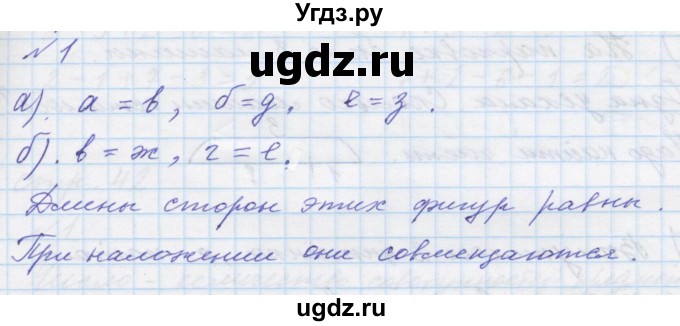 Угдз.ру
ugdz.ru
№ 1
а). а = в, б = д, е = з.
б). в = ж, г = е.
Длины сторон этих фигур равны.
При наложении они совмещаются.
©ugdz.ru
ugdz.ru